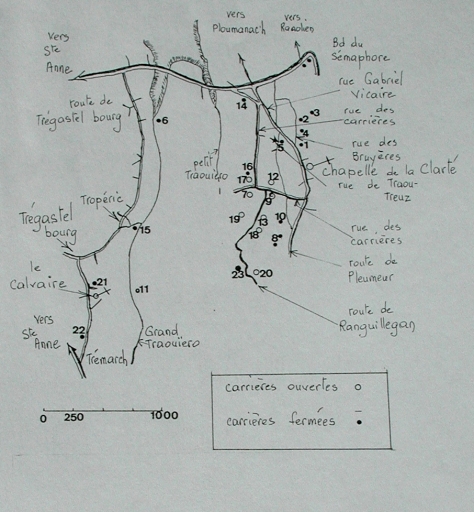 vers
Ste
Anne
vers
Ploumanac'h
vers
Bd du
Sémaphore
rue Gabriel
Vicaire
rue des
carrières
rue des
Bruyères
Chapelle de la Clarté
rue de Traou-
Treuz
rue des
carrières
route de
Pleumeur
route de
Ranguillegan
route de
Trégastel bourg
petit
Traouiero
Tropéric
Trégastel
bourg
le
Calvaire
vers
Ste
Anne
Trémarch
Grand
Traouïero
14
3
2
4
1
5
6
16
17
12
7
9
19
13
10
18
8
15
23
20
21
11
22
0 250 1000
carrières ouvertes o
carrières fermées •